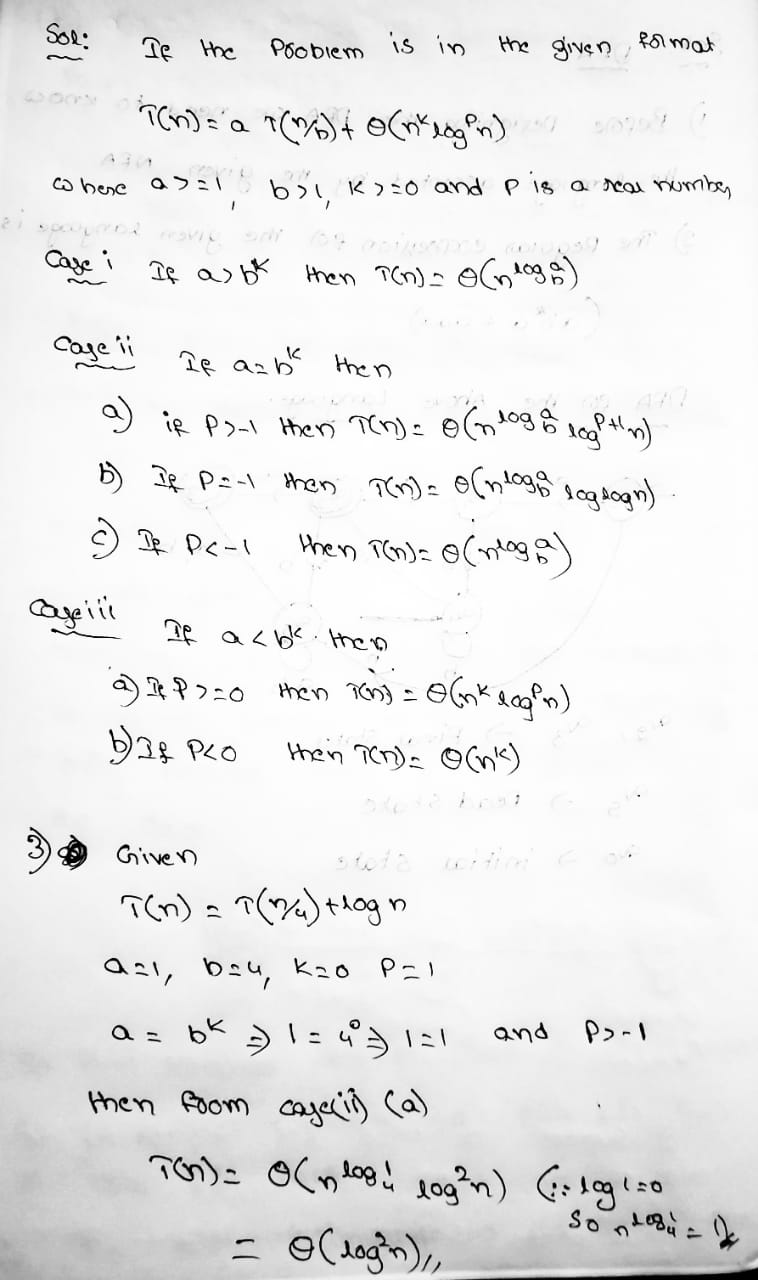 Sol: If the Problem is in the given format
T(n) = a T(n/b) + θ(n^k log^p n)
where a >= 1, b > 1, K >= 0 and P is a real number
Case i If a > b^k then T(n) = θ(n^log_b^a)
Case ii If a = b^k then
a) if P > -1 then T(n) = θ(n^log_b^a log^p+1 n)
b) If P = -1 then T(n) = θ(n^log_b^a log log n).
c) If P < -1 then T(n) = θ(n^log_b^a)
Case iii If a < b^k. then
a) If P >= 0 then T(n) = θ(n^k log^p n)
b) If P < 0 then T(n) = θ(n^k)
3) Given
T(n) = T(n/4) + log n
a = 1, b = 4, K = 0 P = 1
a = b^k ⇒ 1 = 4^0 ⇒ 1 = 1 and P > -1
then from case(ii) (a)
T(n) = θ(n^log_4^1 log^2 n) (∵ log 1 = 0
so n^log_4^1 = 1
= θ(log^2 n)//